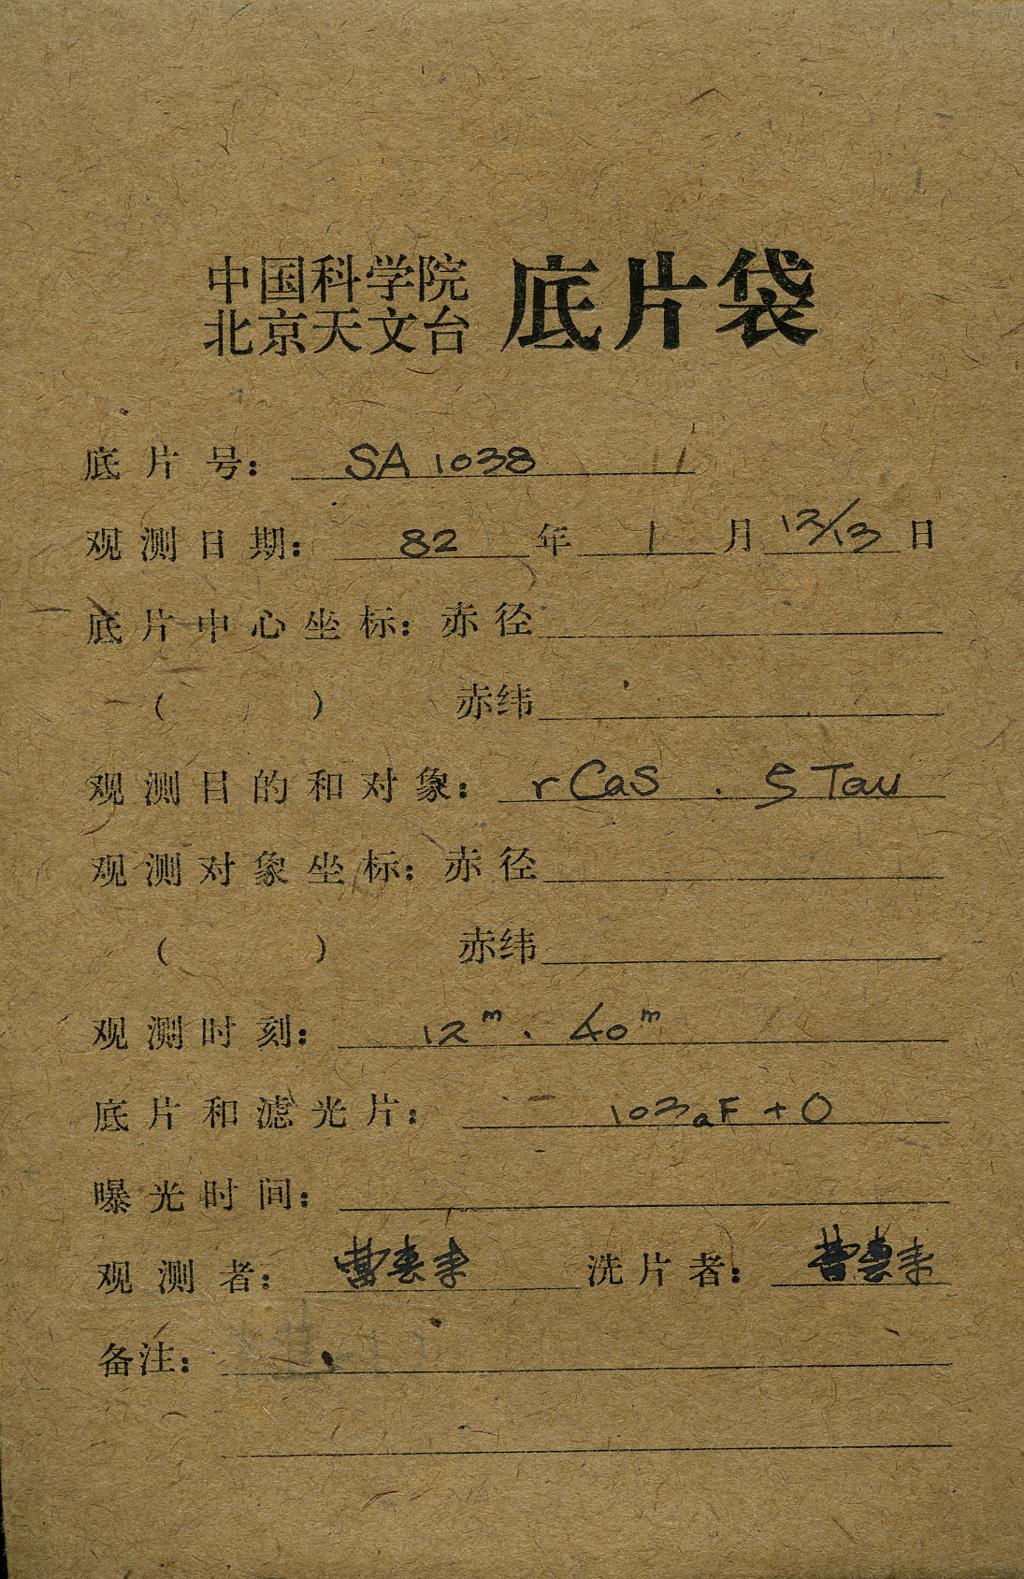 中国科学院
北京天文台
底片袋
底片号: SA 1038
观测日期: 82 年 1 月 12/13 日
底片中心坐标: 赤径
( ) 赤纬
观测目的和对象: r Cas . ζ Tau
观测对象坐标: 赤径
( ) 赤纬
观测时刻: 12ᵐ . 40ᵐ
底片和滤光片: 103aF + O
曝光时间:
观测者: 洗片者:
备注: